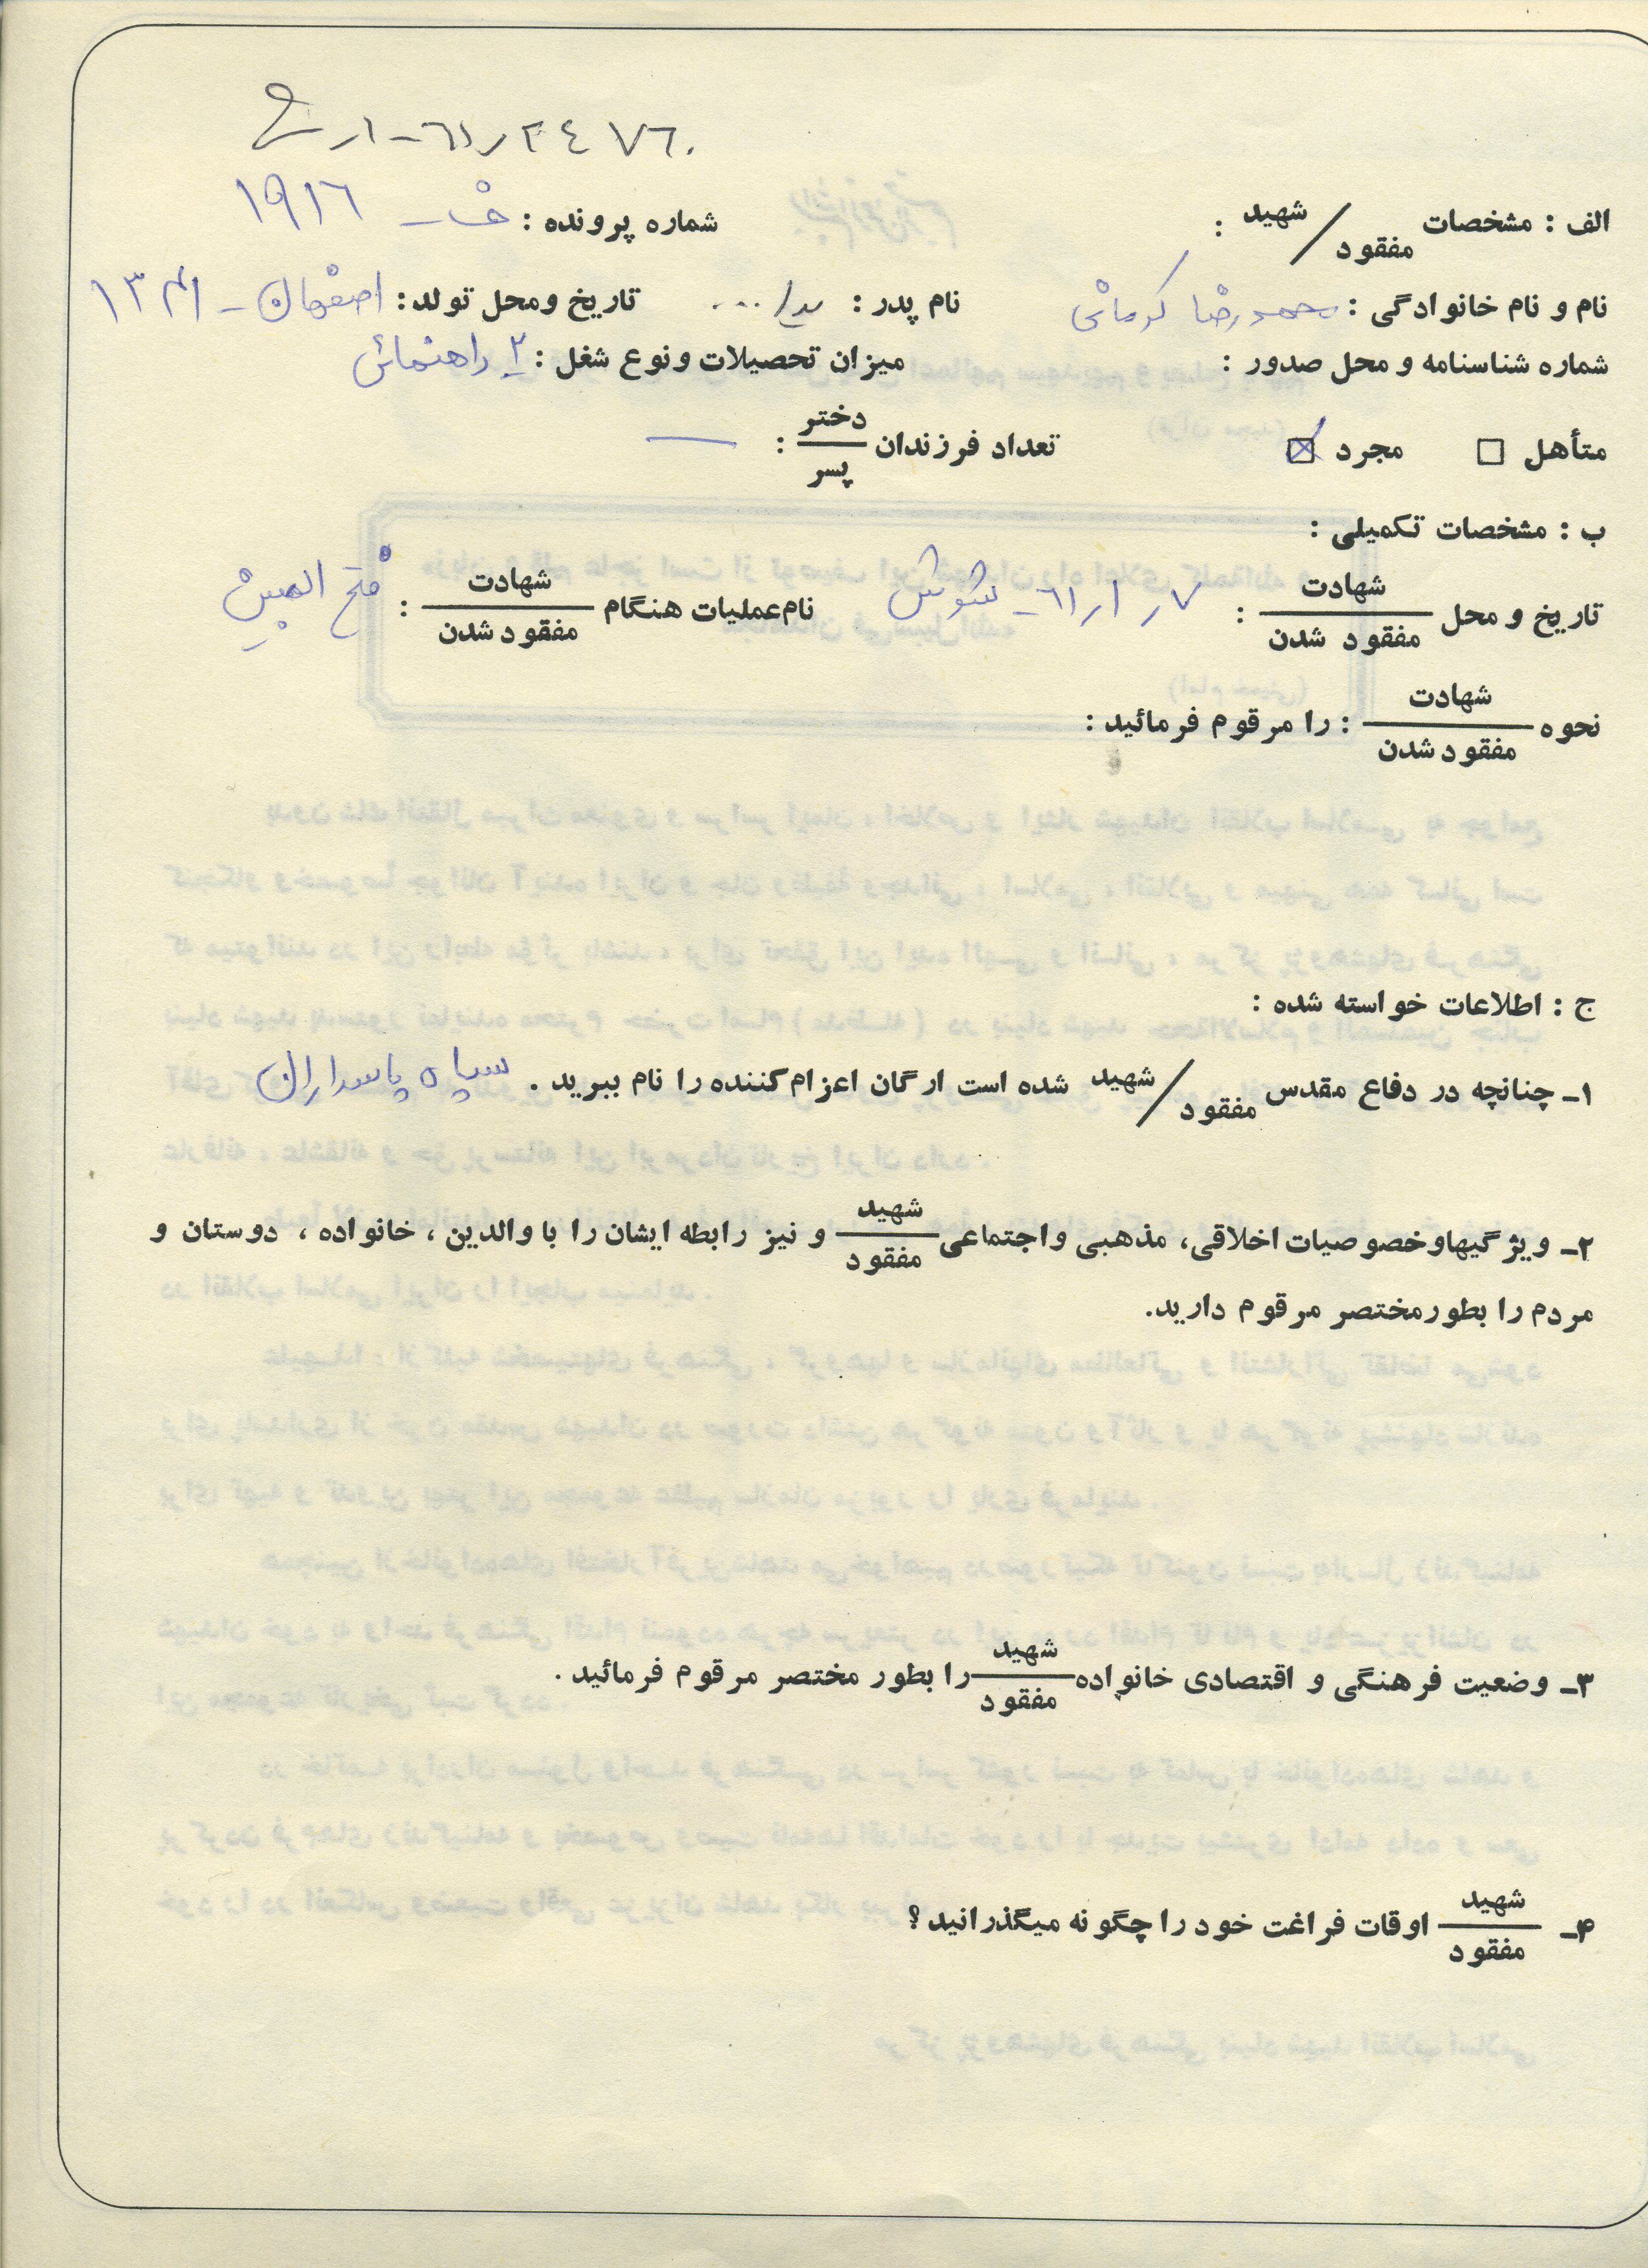 الف : مشخصات شهید / مفقود :
شماره پرونده : ف - ۱۹۱۶
نام و نام خانوادگی : حمیدرضا کرمانی نام پدر : تاریخ ومحل تولد : اصفهان -
شماره شناسنامه و محل صدور : میزان تحصیلات و نوع شغل : ۲ راهنمائی
متأهل □ مجرد ☒ تعداد فرزندان دختر / پسر : —
ب : مشخصات تکمیلی :
تاریخ و محل شهادت / مفقود شدن : ۶۱ر۱ر۷ - شوش نام عملیات هنگام شهادت / مفقود شدن : فتح المبین
نحوه شهادت / مفقود شدن : را مرقوم فرمائید :
ج : اطلاعات خواسته شده :
۱- چنانچه در دفاع مقدس شهید / مفقود شده است ارگان اعزام کننده را نام ببرید . سپاه پاسداران
۲- ویژگیها و خصوصیات اخلاقی، مذهبی و اجتماعی شهید / مفقود و نیز رابطه ایشان را با والدین ، خانواده ، دوستان و
مردم را بطور مختصر مرقوم دارید.
۳- وضعیت فرهنگی و اقتصادی خانواده شهید / مفقود را بطور مختصر مرقوم فرمائید .
۴- شهید / مفقود اوقات فراغت خود را چگونه میگذرانید ؟